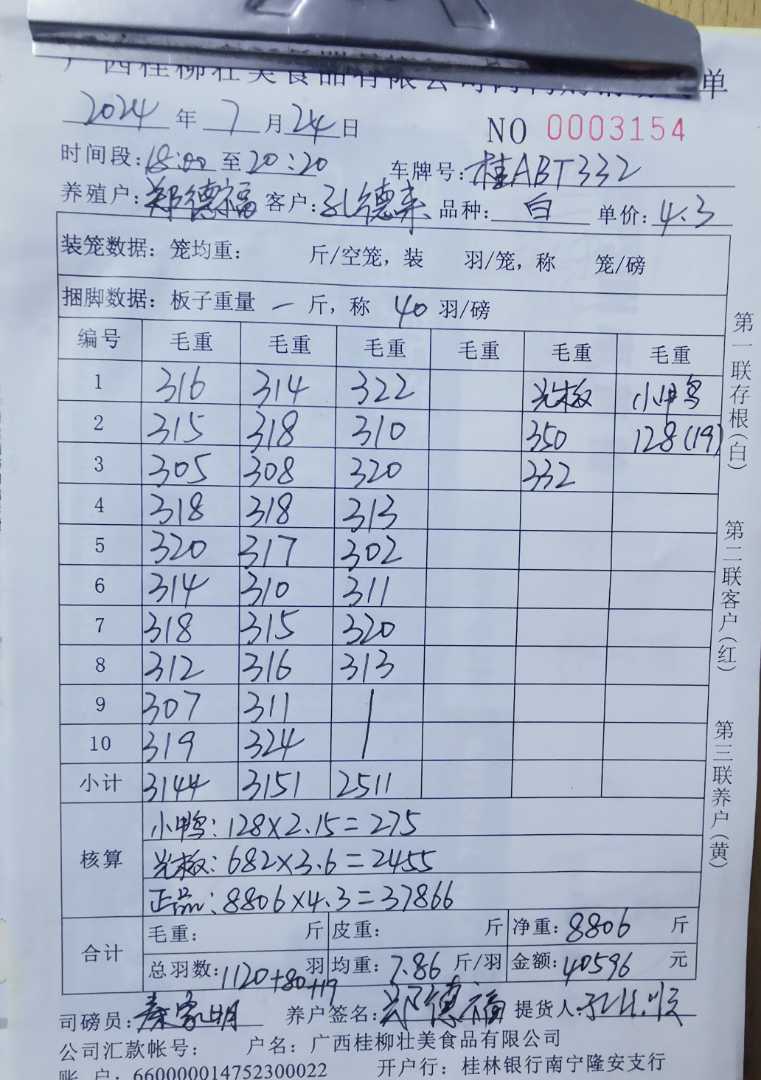 广西桂柳壮美食品有限公司 单
2024 年 7 月 24 日 NO 0003154
时间段: 18:00 至 20:20 车牌号: 桂ABT332
养殖户: 郑德福 客户: 孔德来 品种: 白 单价: 4.3
装笼数据: 笼均重: 斤/空笼, 装 羽/笼, 称 笼/磅
捆脚数据: 板子重量 一 斤, 称 40 羽/磅
编号 毛重 毛重 毛重 毛重 毛重 毛重
1 316 314 322 光板 小甲鸟
2 315 318 310 350 128(19)
3 305 308 320 332
4 318 318 313
5 320 317 302
6 314 310 311
7 318 315 320
8 312 316 313
9 307 311 |
10 319 324 |
小计 3144 3151 2511
核算 小鸭: 128×2.15=275
光板: 682×3.6=2455
正品: 8806×4.3=37866
合计 毛重: 斤 皮重: 斤 净重: 8806 斤
总羽数: 1120+80+19 羽 均重: 7.86 斤/羽 金额: 40596 元
司磅员: 秦家明 养户签名: 郑德福 提货人:
公司汇款帐号: 户名: 广西桂柳壮美食品有限公司
账 户: 660000014752300022 开户行: 桂林银行南宁隆安支行
第一联存根(白)
第二联客户(红)
第三联养户(黄)